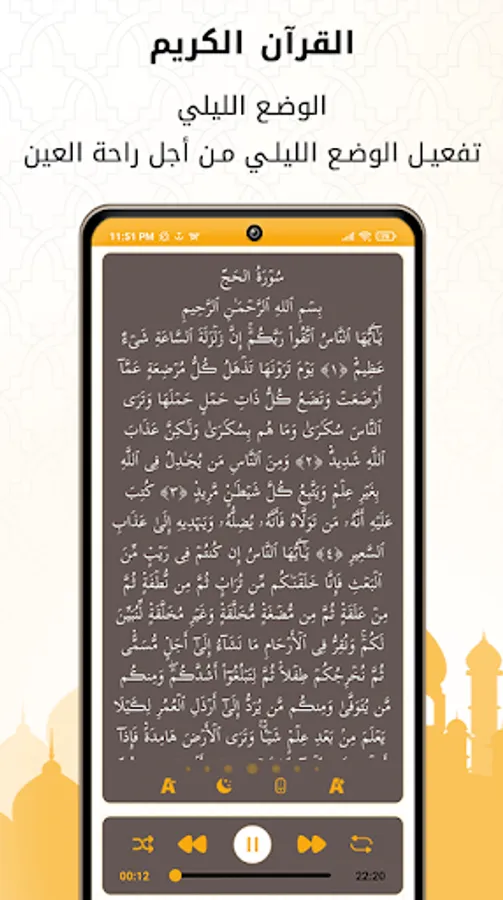 القرآن الكريم
الوضع الليلي
تفعيل الوضع الليلي من أجل راحة العين
11:51 PM
سُورَةُ الحَجِّ
بِسْمِ ٱللَّهِ ٱلرَّحْمَٰنِ ٱلرَّحِيمِ
يَٰٓأَيُّهَا ٱلنَّاسُ ٱتَّقُوا۟ رَبَّكُمْ ۚ إِنَّ زَلْزَلَةَ ٱلسَّاعَةِ شَىْءٌ
عَظِيمٌ ﴿١﴾ يَوْمَ تَرَوْنَهَا تَذْهَلُ كُلُّ مُرْضِعَةٍ عَمَّآ
أَرْضَعَتْ وَتَضَعُ كُلُّ ذَاتِ حَمْلٍ حَمْلَهَا وَتَرَى
ٱلنَّاسَ سُكَٰرَىٰ وَمَا هُم بِسُكَٰرَىٰ وَلَٰكِنَّ عَذَابَ
ٱللَّهِ شَدِيدٌ ﴿٢﴾ وَمِنَ ٱلنَّاسِ مَن يُجَٰدِلُ فِى ٱللَّهِ
بِغَيْرِ عِلْمٍ وَيَتَّبِعُ كُلَّ شَيْطَٰنٍ مَّرِيدٍ ﴿٣﴾ كُتِبَ
عَلَيْهِ أَنَّهُۥ مَن تَوَلَّاهُ فَأَنَّهُۥ يُضِلُّهُۥ وَيَهْدِيهِ إِلَىٰ عَذَابِ
ٱلسَّعِيرِ ﴿٤﴾ يَٰٓأَيُّهَا ٱلنَّاسُ إِن كُنتُمْ فِى رَيْبٍ مِّنَ
ٱلْبَعْثِ فَإِنَّا خَلَقْنَٰكُم مِّن تُرَابٍ ثُمَّ مِن نُّطْفَةٍ ثُمَّ
مِنْ عَلَقَةٍ ثُمَّ مِن مُّضْغَةٍ مُّخَلَّقَةٍ وَغَيْرِ مُخَلَّقَةٍ لِّنُبَيِّنَ
لَكُمْ ۚ وَنُقِرُّ فِى ٱلْأَرْحَامِ مَا نَشَآءُ إِلَىٰٓ أَجَلٍ مُّسَمًّى
ثُمَّ نُخْرِجُكُمْ طِفْلًا ثُمَّ لِتَبْلُغُوٓا۟ أَشُدَّكُمْ ۖ وَمِنكُم
مَّن يُتَوَفَّىٰ وَمِنكُم مَّن يُرَدُّ إِلَىٰٓ أَرْذَلِ ٱلْعُمُرِ لِكَيْلَا
يَعْلَمَ مِنۢ بَعْدِ عِلْمٍ شَيْـًٔا ۚ وَتَرَى ٱلْأَرْضَ هَامِدَةً فَإِذَآ
00:12
22:20